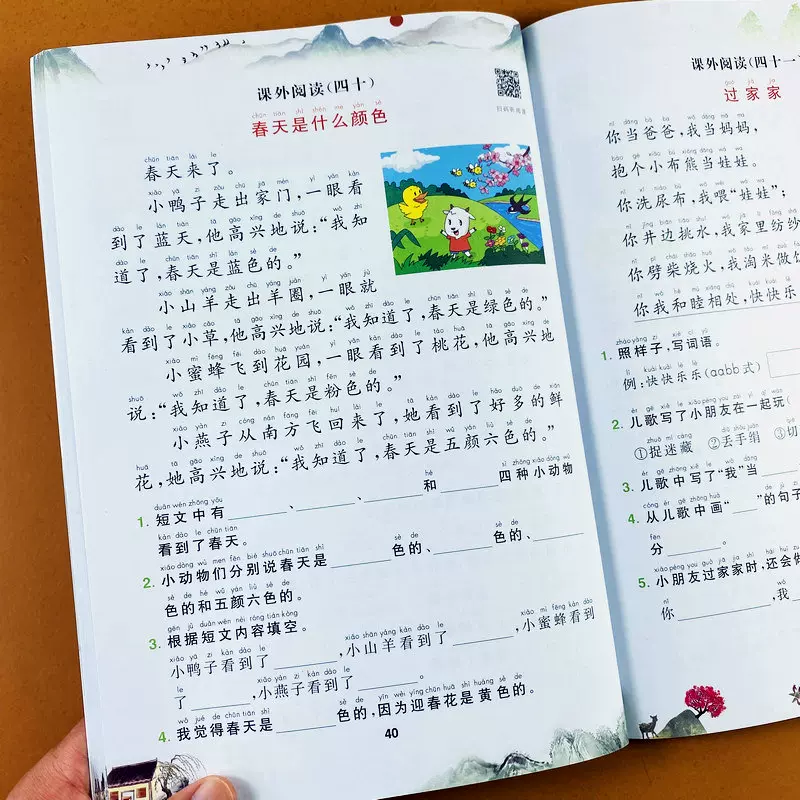 课外阅读(四十)
扫码听阅读
chūn tiān shì shén me yán sè
春天是什么颜色
chūn tiān lái le
春天来了。
xiǎo yā zi zǒu chū jiā mén yì yǎn kàn
小鸭子走出家门,一眼看
dào le lán tiān tā gāo xìng de shuō wǒ zhī
到了蓝天,他高兴地说:“我知
dào le chūn tiān shì lán sè de
道了,春天是蓝色的。”
xiǎo shān yáng zǒu chū yáng juàn yì yǎn jiù
小山羊走出羊圈,一眼就
kàn dào le xiǎo cǎo tā gāo xìng de shuō wǒ zhī dào le chūn tiān shì lǜ sè de
看到了小草,他高兴地说:“我知道了,春天是绿色的。”
xiǎo mì fēng fēi dào huā yuán yì yǎn kàn dào le táo huā tā gāo xìng de
小蜜蜂飞到花园,一眼看到了桃花,他高兴地
shuō wǒ zhī dào le chūn tiān shì fěn sè de
说:“我知道了,春天是粉色的。”
xiǎo yàn zi cóng nán fāng fēi huí lái le tā kàn dào le hǎo duō de xiān
小燕子从南方飞回来了,她看到了好多的鲜
huā tā gāo xìng de shuō wǒ zhī dào le chūn tiān shì wǔ yán liù sè de
花,她高兴地说:“我知道了,春天是五颜六色的。”
duǎn wén zhōng yǒu hé sì zhǒng xiǎo dòng wù
1. 短文中有______、______、______和______四种小动物
kàn dào le chūn tiān
看到了春天。
xiǎo dòng wù men fēn bié shuō chūn tiān shì sè de sè de
2. 小动物们分别说春天是______色的、______色的、______
sè de hé wǔ yán liù sè de
色的和五颜六色的。
gēn jù duǎn wén nèi róng tián kòng
3. 根据短文内容填空。
xiǎo yā zi kàn dào le xiǎo shān yáng kàn dào le xiǎo mì fēng kàn dào
小鸭子看到了______,小山羊看到了______,小蜜蜂看到
le xiǎo yàn zi kàn dào le
了______,小燕子看到了______。
wǒ jué de chūn tiān shì sè de yīn wèi yíng chūn huā shì huáng sè de
4. 我觉得春天是______色的,因为迎春花是黄色的。
40
课外阅读(四十一
guò jiā jia
过家家
nǐ dāng bà ba wǒ dāng mā ma
你当爸爸,我当妈妈,
bào gè xiǎo bù xióng dāng wá wa
抱个小布熊当娃娃。
nǐ xǐ niào bù wǒ wèi wá wa
你洗尿布,我喂“娃娃”;
你井边挑水,我家里纺纱
你劈柴烧火,我淘米做饭
你我和睦相处,快快乐
zhào yàng zi xiě cí yǔ
1. 照样子,写词语。
例:快快乐乐(aabb式)
2. 儿歌写了小朋友在一起玩(
①捉迷藏 ②丢手绢 ③切
3. 儿歌中写了“我”当______
4. 从儿歌中画“____”的句子
fēn
分______。
5. 小朋友过家家时,还会做
nǐ wǒ
你______,我